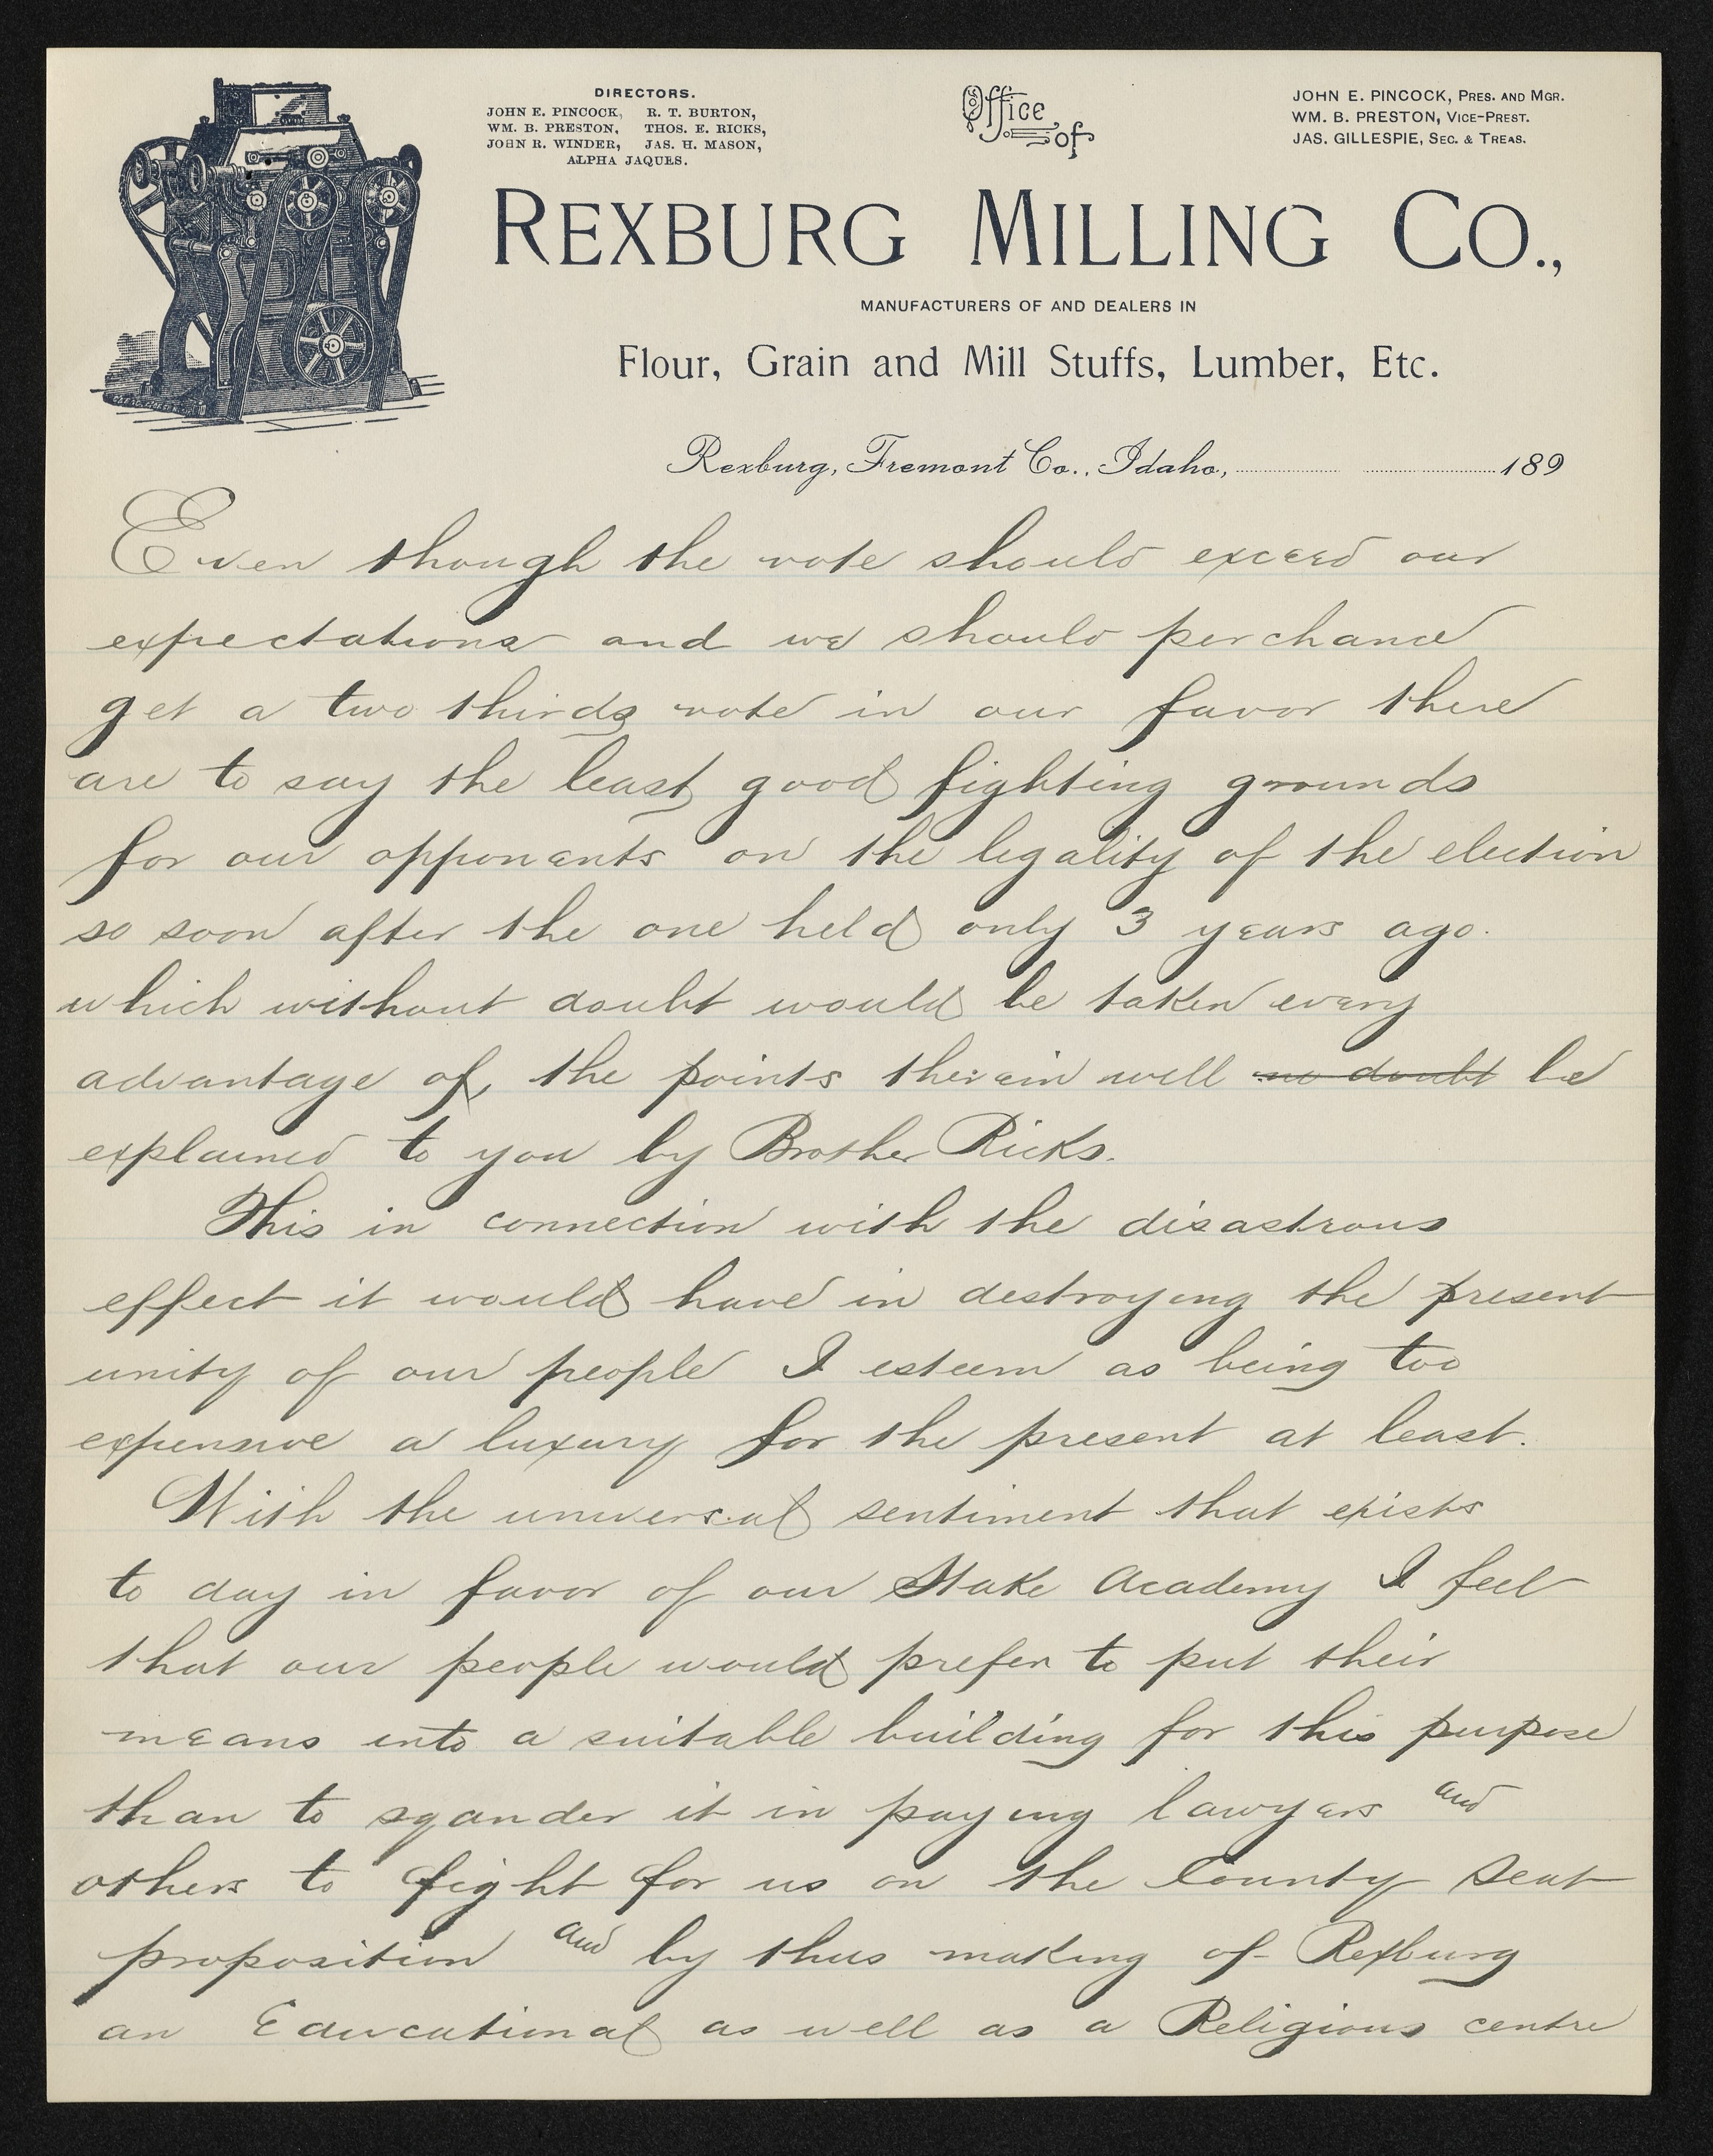 DIRECTORS.
JOHN E. PINCOCK, R. T. BURTON,
WM. B. PRESTON, THOS. E. RICKS,
JOHN R. WINDER, JAS. H. MASON,
ALPHA JAQUES.
Office of
JOHN E. PINCOCK, PRES. AND MGR.
WM. B. PRESTON, VICE-PREST.
JAS. GILLESPIE, SEC. & TREAS.
REXBURG MILLING CO.,
MANUFACTURERS OF AND DEALERS IN
Flour, Grain and Mill Stuffs, Lumber, Etc.
Rexburg, Fremont Co., Idaho, 189
Even though the vote should exceed our
expectations and we should perchance
get a two thirds vote in our favor there
are to say the least good fighting grounds
for our opponents on the legality of the election
so soon after the one held only 3 years ago.
which without doubt would be taken every
advantage of, the points therein will no doubt be
explained to you by Brother Ricks.
This in connection with the disastrous
effect it would have in destroying the present
unity of our people I esteem as being too
expensive a luxury for the present at least.
With the universal sentiment that exists
to day in favor of our Stake Academy I feel
that our people would prefer to put their
means into a suitable building for this purpose
than to sqander it in paying lawyers and
others to fight for us on the County Seat
proposition and by thus making of Rexburg
an Educational as well as a Religious centre